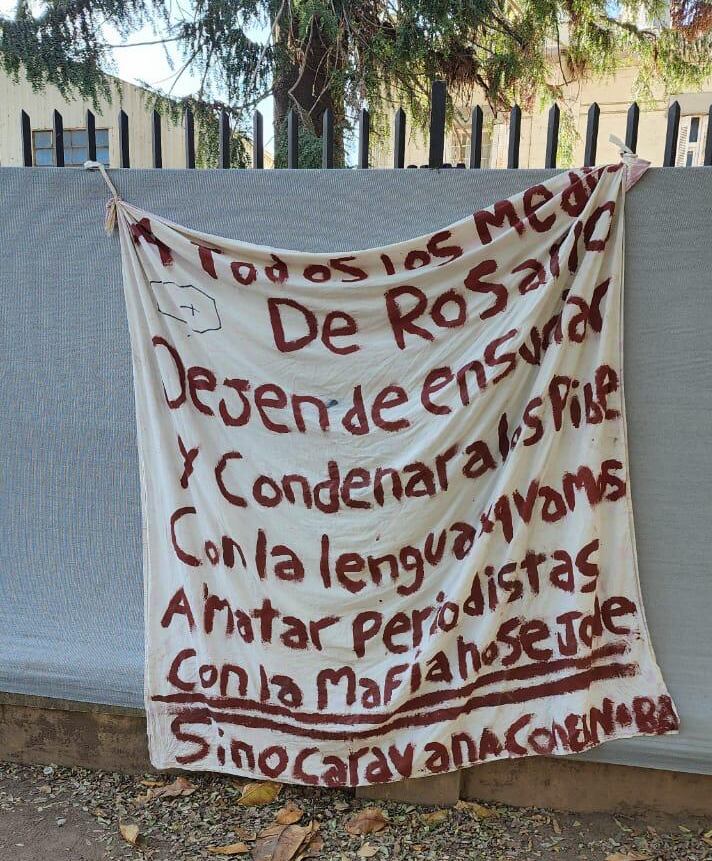 A Todos los Medio
De RoSario
Dejen de ensuciar
Y Condenar a los Pibe
Con la lengua xq vamos
A Matar Periodistas
Con la Mafia no se Jode
Sino CaravanA Con El N